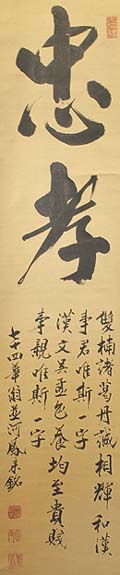 忠孝
雙楠諸葛丹誠相輝和漢
事君唯斯一字
漢文吳盂色養均至貴賤
事親唯斯一字
七十四華翁並河